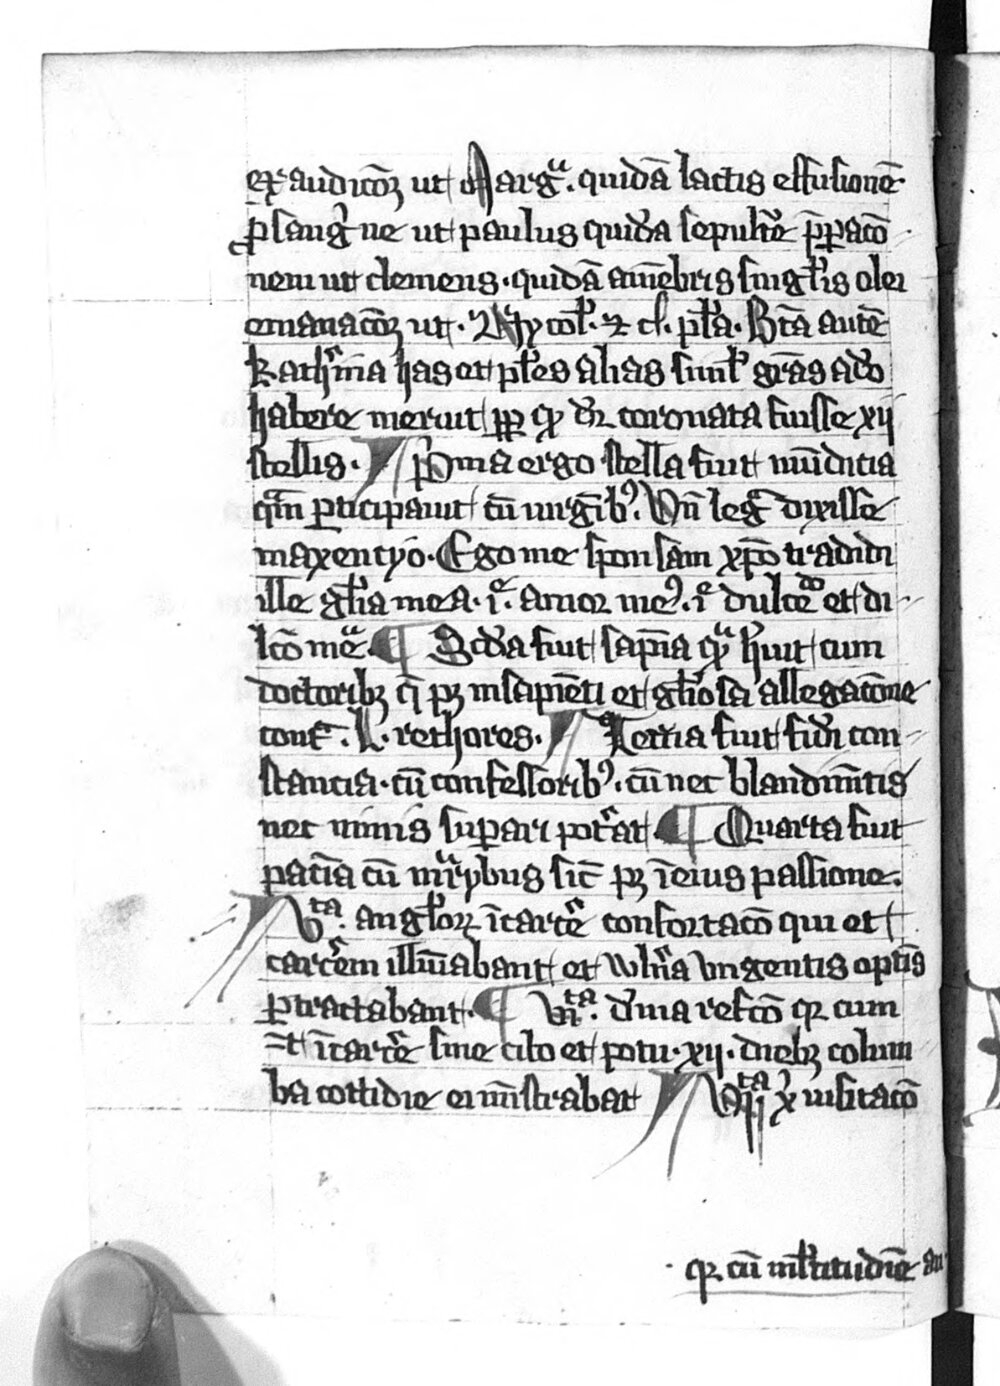 exaudicōꝫ ut Margᵃ. quidā lactis effusionē
ꝓ sangⁱne ut paulus quidā sepultᵉ p̄paco̅
nem ut clemens. quidā a mēbris singlis olei
emanacōꝫ ut. Nycol. ⁊ pl̄a. Bt̄a autē
katherina has et pl̄es alias siml̓ grās a deo
habere meruit ꝓp̱ qd̓ dr̄ coronata fuisse xij
stellis. Prima ergo stella fuit mūdicia
qͣm ꝑticipauit cū uirgīibꝰ. Vn̄ legᵗ dixisse
maxentyo. Ego me sponsam xp̄o tradidi
ille gl̓ia mea. iᵉ. amor meꝰ. iᵉ dulcedo et di
lc̄o mea. Scd̓a fuit sapīa qᵃ h̓uit cum
doctoribꝫ qͥ pꝫ in sapiēti et gl̓iosa allegacōne
contᵃ. L. rethores. Tercia fuit fidei con
stancia. cū confessoribꝰ. cū nec blandimētis
nec minis suꝑari potᵉat Quarta fuit
paciēcia cū mᵃrtyribus sic̄ pꝫ ī eius passione.
Vta. angl̓oꝝ ī carcᵉe confortacō qui et
carcᵉem illūiabant et uuln̄a ungentis optīs
ꝑtractabant. VIta. d̓iuina refcō qꝛ cum
eēt ī carcᵉe sine cibo et potu. xij. diebꝫ colum
ba cottidie ei mīstrabat VIIta xᵖⁱ uisitacō
. qꝛ cū ml̓titudīe an